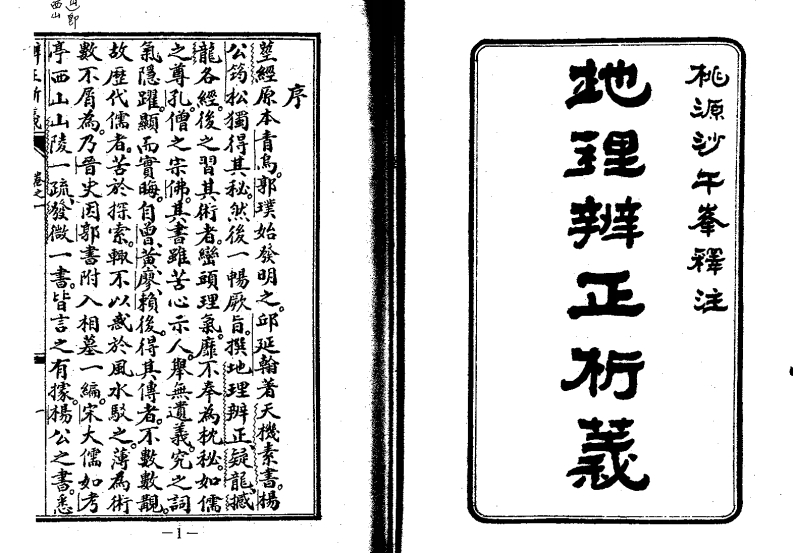 桃源沙午峯釋注
地理辨正析義
序
塋經原本青烏。郭璞始發明之。邱延翰著天機素書。楊
公筠松獨得其秘。然後一暢厥旨。撰地理辨正、疑龍、撼
龍各經。後之習其術者。巒頭理氣。靡不奉為枕秘。如儒
之尊孔。僧之宗佛。其書雖苦心示人。舉無遺義。究之詞
氣隱躍。顯而實晦。自曾、黃、廖、賴後。得其傳者。不數數覯。
故歷代儒者。苦於探索。輒不以惑於風水駁之。薄為術
數不屑為。乃晉史因郭書附入相墓一編。宋大儒如考
亭西山山陵一疏、發微一書。皆言之有據。楊公之書。悉
卷之一
一
即
西山
—1—